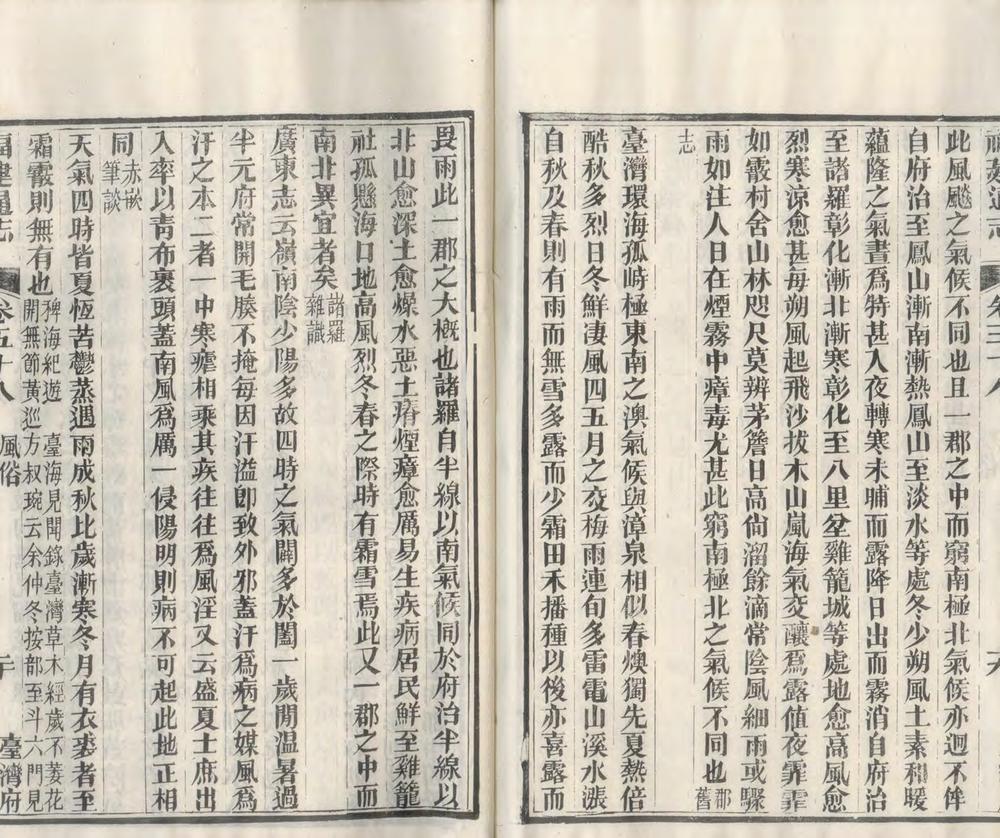 福建通志 卷五十八
此風飈之氣候不同也且一郡之中而窮南極北氣候亦迥不侔
自府治至鳳山漸南漸熱鳳山至淡水等處冬少朔風土素和暖
蘊隆之氣晝爲特甚入夜轉寒未晡而露降日出而霧消自府治
至諸羅彰化漸北漸寒彰化至八里坌雞籠城等處地愈高風愈
烈寒凉愈甚每朔風起飛沙拔木山嵐海氣交釀爲露値夜霏霏
如霰村舍山林咫尺莫辨茅簷日高尙溜餘滴常陰風細雨或驟
雨如注人日在煙霧中瘴毒尤甚此窮南極北之氣候不同也郡舊
志
臺灣環海孤峙極東南之澳氣候與漳泉相似春燠獨先夏熱倍
酷秋多烈日冬鮮凄風四五月之交梅雨連旬多雷電山溪水漲
自秋及春則有雨而無雪多露而少霜田禾播種以後亦喜露而
畏雨此一郡之大槪也諸羅自半線以南氣候同於府治半線以
北山愈深土愈燥水惡土瘠煙瘴愈厲易生疾病居民鮮至雞籠
社孤懸海口地高風烈冬春之際時有霜雪焉此又一郡之中而
南北異宜者矣諸羅雜識
廣東志云嶺南陰少陽多故四時之氣闢多於闔一歲閒温暑過
半元府常開毛腠不掩每因汗溢卽致外邪蓋汗爲病之媒風爲
汗之本二者一中寒瘧相乘其疾往往爲風淫又云盛夏士庶出
入率以靑布裹頭蓋南風爲厲一侵陽明則病不可起此地正相
同赤嵌筆談
天氣四時皆夏恆苦鬱蒸遇雨成秋比歲漸寒冬月有衣裘者至
霜霰則無有也稗海紀遊 臺海見聞錄臺灣草木經歲不萎花開無節黃巡方叔琬云余仲冬按部至斗六門見
福建通志 卷五十八 風俗 臺灣府